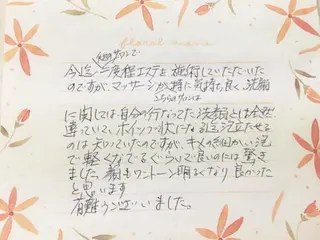 floral
今迄二度程エステを施行していただいた
のですが、マッサージが特に気持ち良く、洗顔
こちらのサロンは
に関しては自分の行なってた洗顔とは全然
違っていて、ホイップ状になる迄泡立たせる
のは知っていたのですが、キメの細かい泡
で軽くなでるぐらいで良いのには驚き
ました。顔もワントーン明るくなり良かった
と思います
有難うございました。